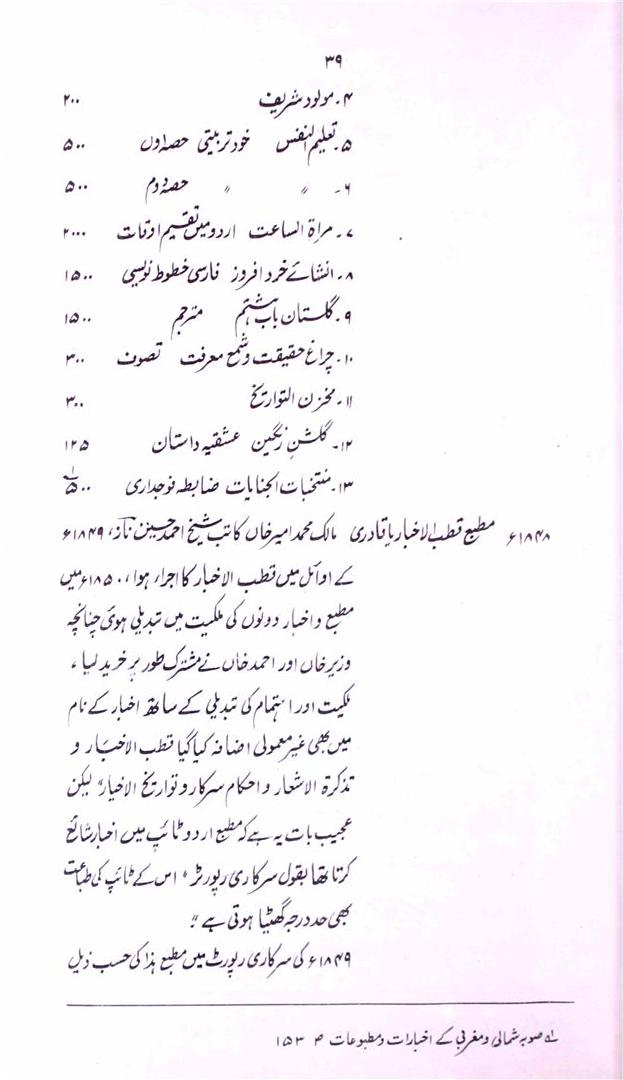 ۳۹
۴۔ مولود شریف ۲۰۰
۵۔ تعلیم النفس خود تربیتی حصہ اول ۵۰۰
۶۔ 〃 〃 حصہ دوم ۵۰۰
۷۔ مراۃ الساعت اردو میں تقسیم اوقات ۲۰۰۰
۸۔ انشائے خرد افروز فارسی خطوط نویسی ۱۵۰۰
۹۔ گلستان باب ہشتم مترجم ۱۵۰۰
۱۰۔ چراغ حقیقت و شمع معرفت تصوف ۳۰۰
۱۱۔ مخزن التواریخ ۳۰۰
۱۲۔ گلشنِ رنگین عشقیہ داستان ۱۲۵
۱۳۔ منتخبات الجنایات ضابطہ فوجداری ۵۰۰ ؎۱
۱۸۴۸ء مطبع قطب الاخبار یا قادری مالک محمد امیر خاں کاتب شیخ احمد حسین نازؔ، ۱۸۴۹ء
کے اوائل میں قطب الاخبار کا اجراء ہوا، ۱۸۵۰ء میں
مطبع و اخبار دونوں کی ملکیت میں تبدیلی ہوئی چنانچہ
وزیر خاں اور احمد خاں نے مشترک طور پر خرید لیا،
ملکیت اور اہتمام کی تبدیلی کے ساتھ اخبار کے نام
میں بھی غیر معمولی اضافہ کیا گیا قطب الاخبار و
تذکرۃ الاشعار و احکام سرکار و تواریخ الاخیار" لیکن
عجیب بات یہ ہے کہ مطبع اردو ٹائپ میں اخبار شائع
کرتا تھا بقول سرکاری رپورٹر "اس کے ٹائپ کی طباعت
بھی حد درجہ گھٹیا ہوتی ہے"
۱۸۴۹ء کی سرکاری رپورٹ میں مطبع ہذا کی حسب ذیل
؎۱ صوبہ شمالی و مغربی کے اخبارات و مطبوعات ص ۱۵۳